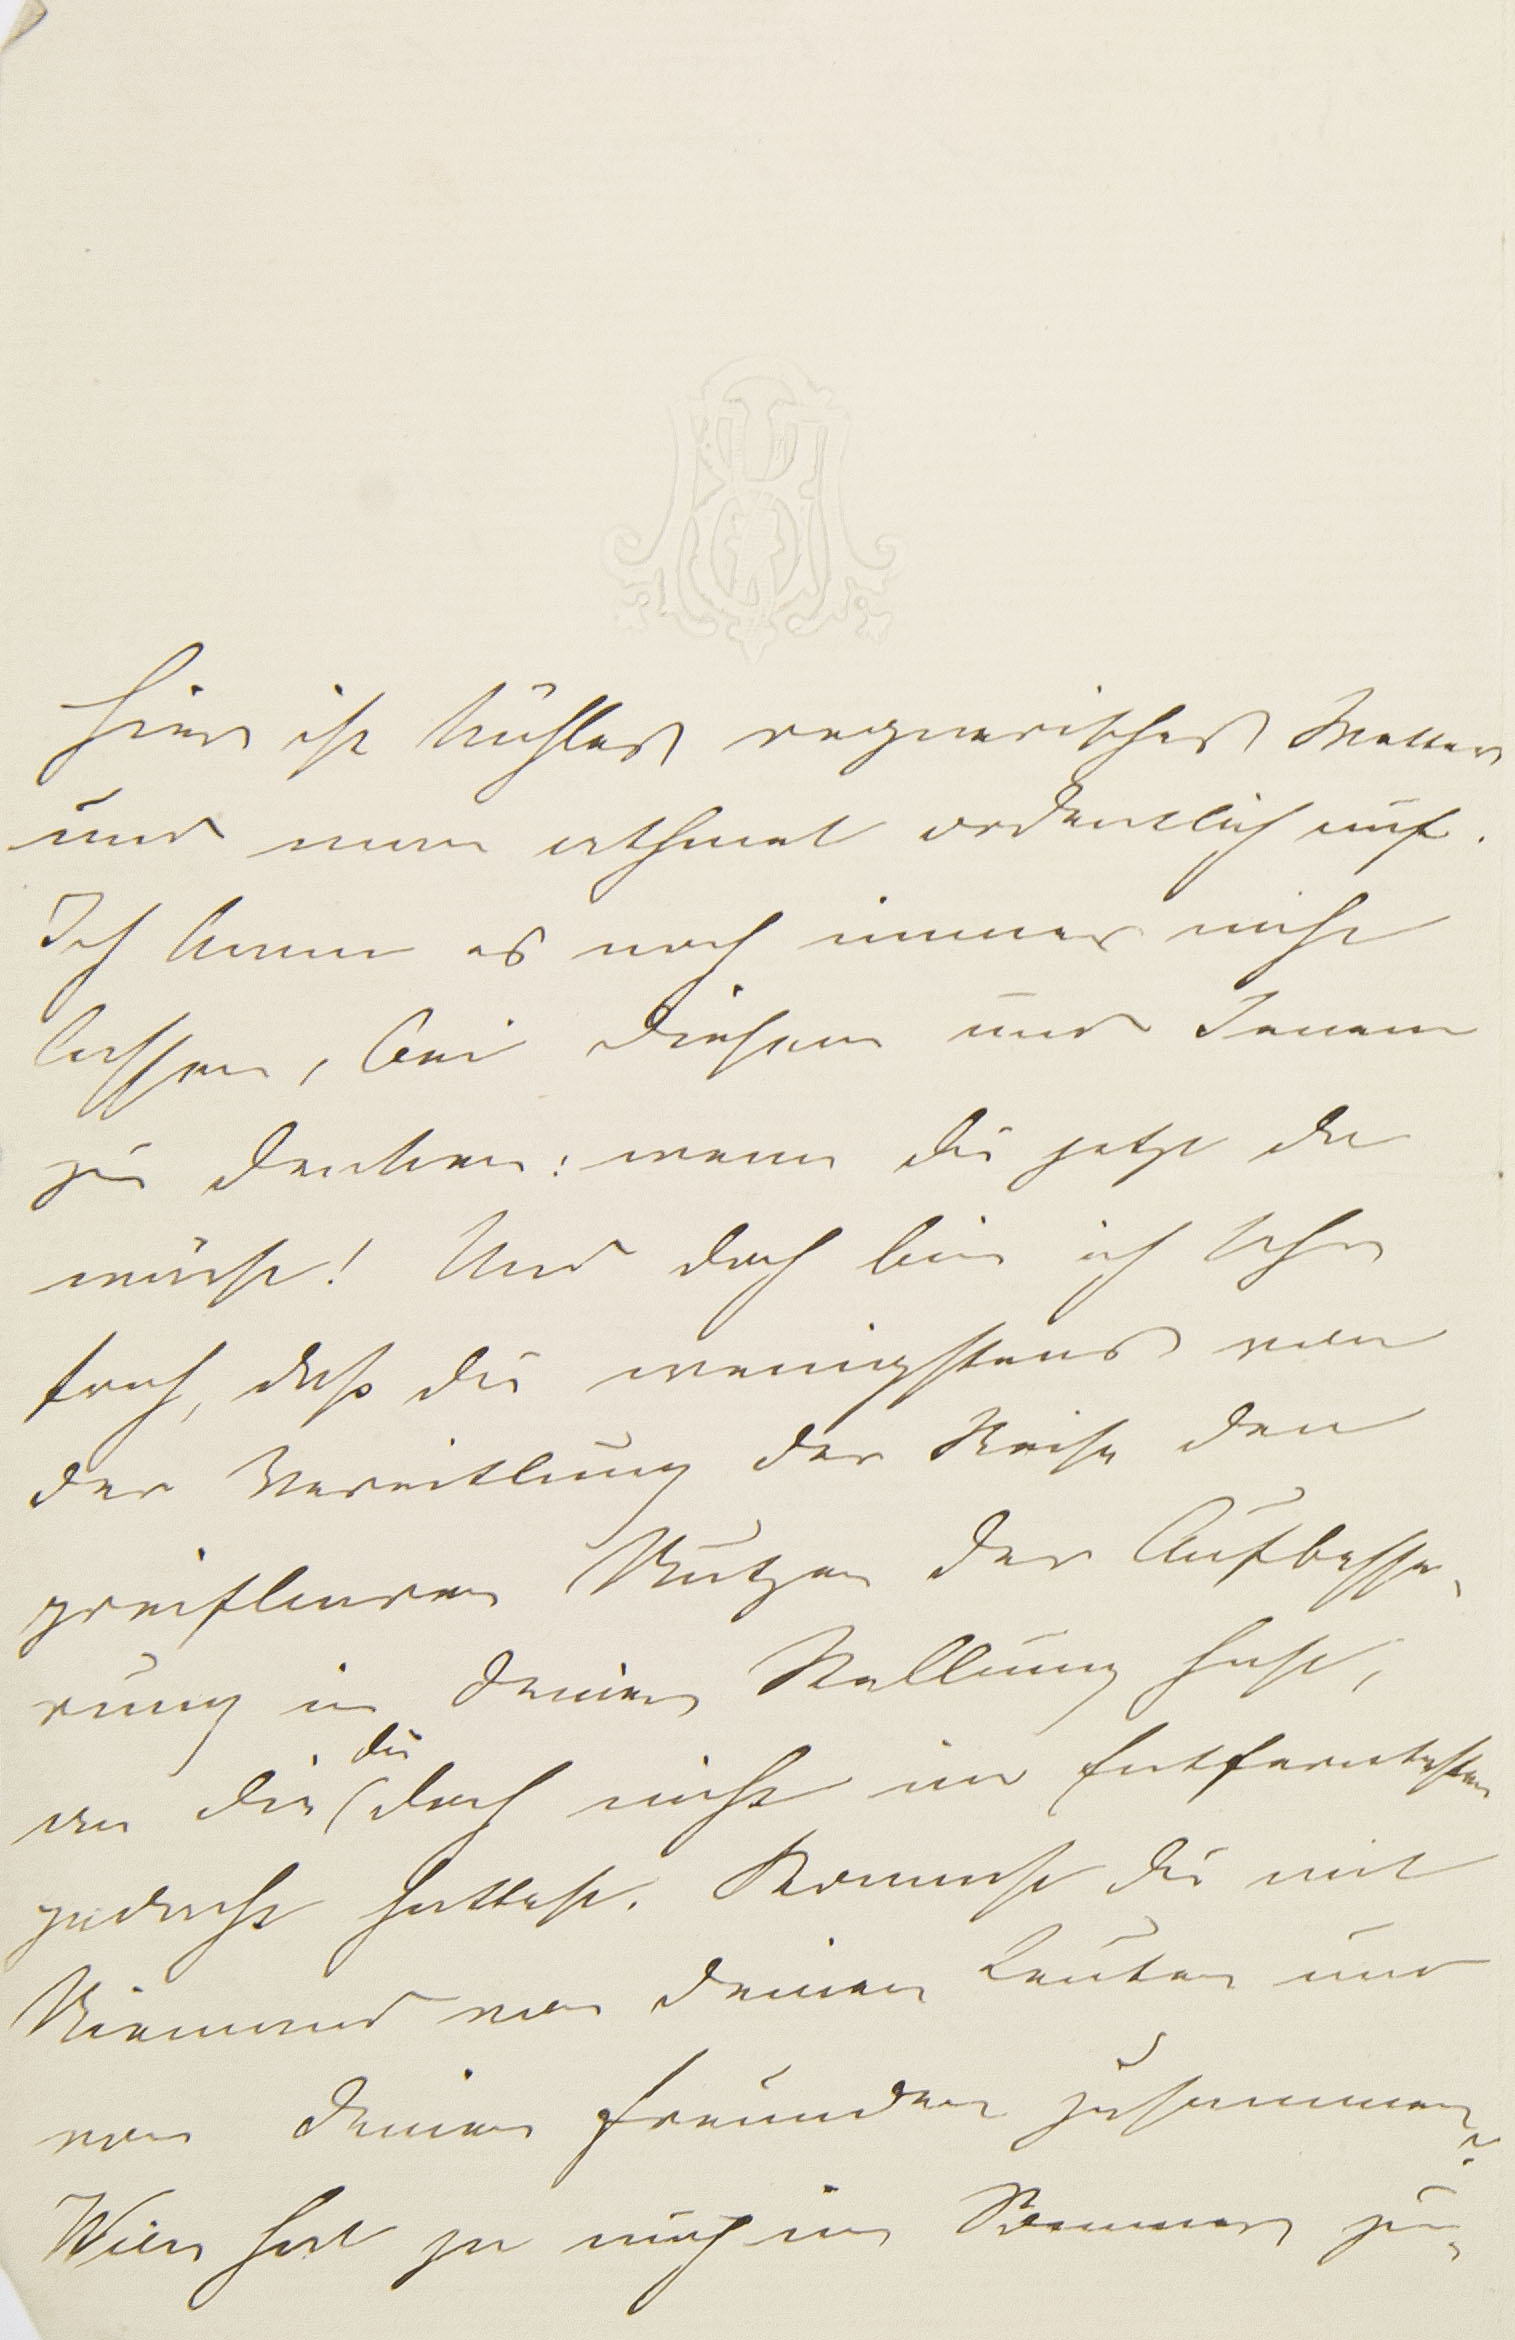 Hier ist kühles regnerisches Wetter
und man athmet ordentlich auf.
Ich kann es noch immer nicht
lassen, bei Diesem und Jenem
zu denken: wenn du jetzt da
wärst! Und doch bin ich sehr
froh, daß du wenigstens von
der Vereitlung der Reise den
greifbaren Nutzen der Aufbesse-
rung in deiner Stellung hast,
an die du doch nicht im Entferntesten
gedacht hattest. Kommst du mit
Niemand von deinen Leuten und
von deinen Freunden zusammen?
Wien hat ja auch im Sommer zu-